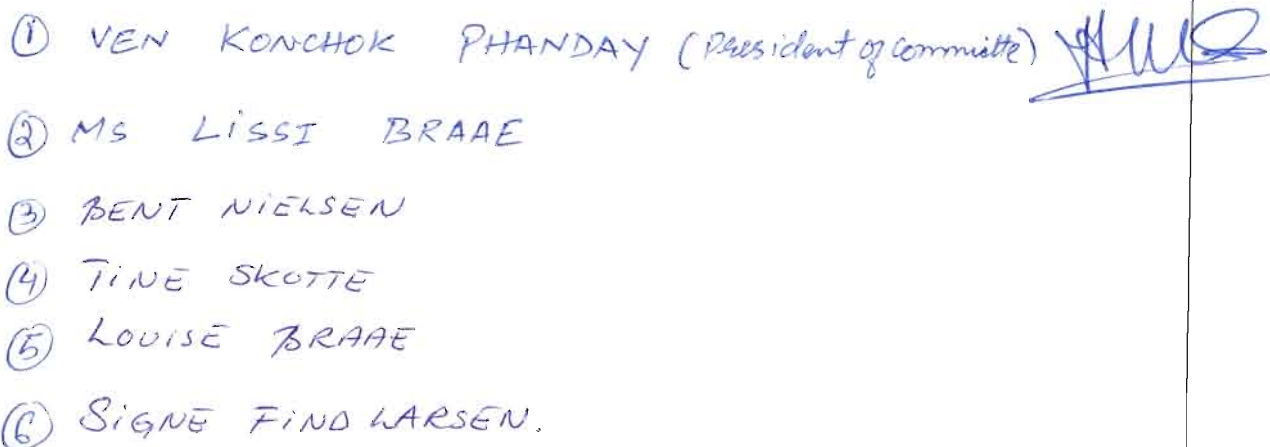 ① VEN KONCHOK PHANDAY (President of committe)
② MS LISSI BRAAE
③ BENT NIELSEN
④ TINE SKOTTE
⑤ LOUISE BRAAE
⑥ SIGNE FIND LARSEN.